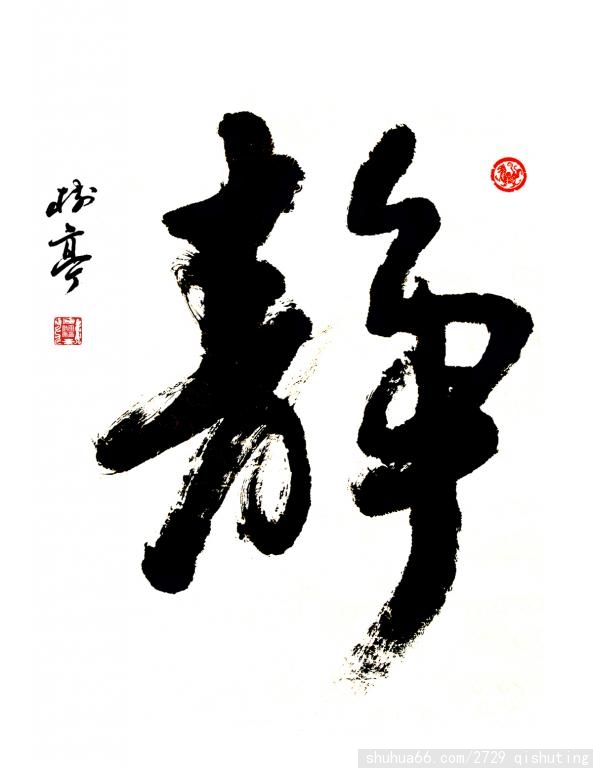 静
树亭
shuhua66.com/2729 qishuting